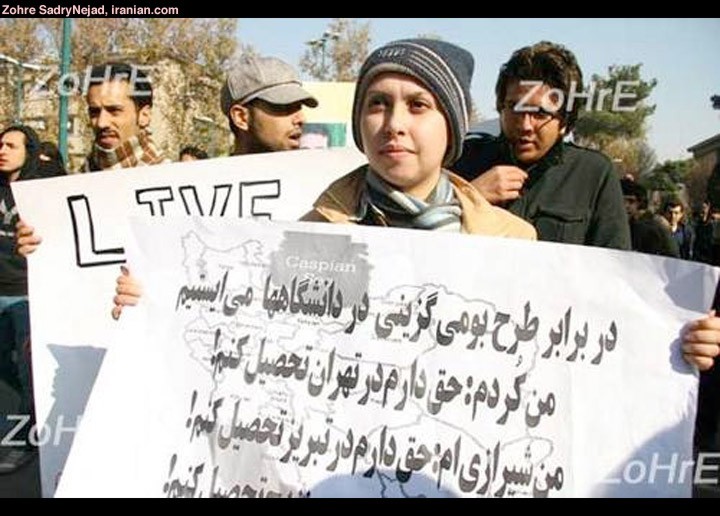 Zohre SadryNejad, iranian.com
ZoHrE
ZoHrE
LIVE
Caspian
در برابر طرح بومی گزینی در دانشگاهها می‌ایستیم
من کُردم: حق دارم در تهران تحصیل کنم!
من شیرازی ام: حق دارم در تبریز تحصیل کنم!
تحصیل کنم!
ZoH
ZoHrE